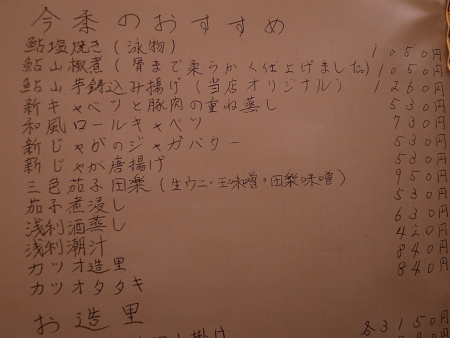 今季のおすすめ
鮎塩焼き(泳物) 1050円
鮎山椒煮(骨まで柔らかく仕上げました。) 1050円
鮎山芋鋳込み揚げ(当店オリジナル) 1260円
新キャベツと豚肉の重ね蒸し 530円
和風ロールキャベツ 730円
新じゃがのジャガバター 530円
新じゃが唐揚げ 530円
三色茄子田楽(生ウニ・玉味噌・田楽味噌) 950円
茄子煮浸し 530円
浅利酒蒸し 630円
浅利潮汁 420円
カツオ造里 840円
カツオタタキ 840円
お造里
各3150円